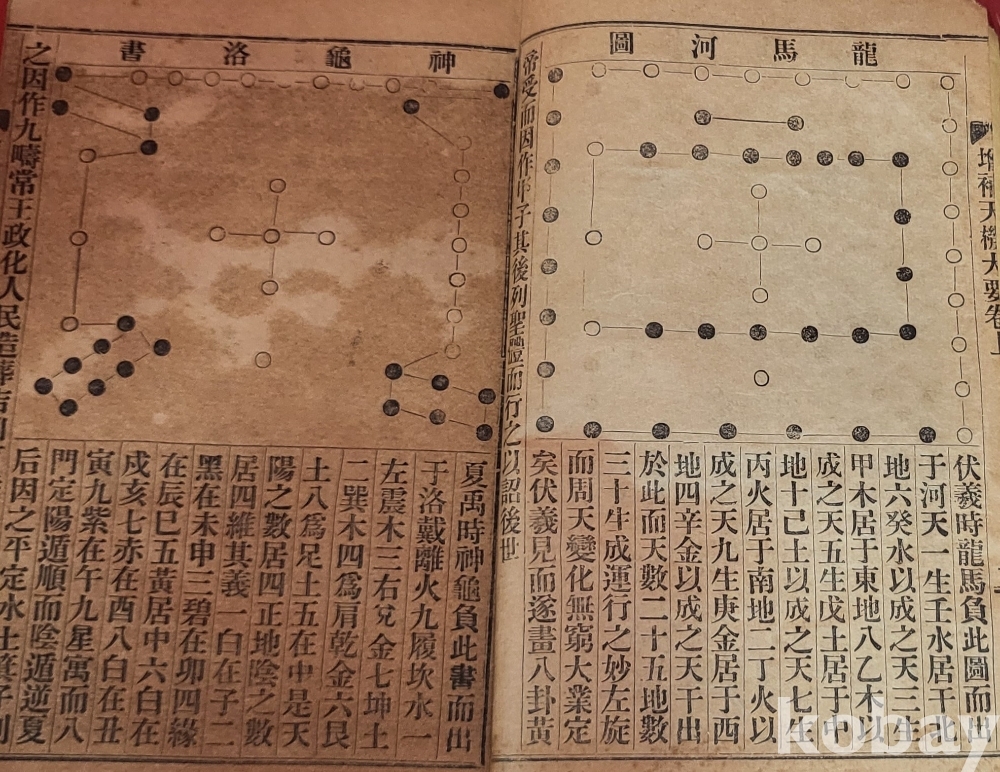 增補天機大要卷上
龍馬河圖
伏羲時龍馬負此圖而出
于河天一生壬水居于北
地六癸水以成之天三生
甲木居于東地八乙木以
成之天五生戊土居于中
地十己土以成之天七生
丙火居于南地二丁火以
成之天九生庚金居于西
地四辛金以成之天干出
於此而天數二十五地數
三十生成運行之妙左旋
而周天變化無窮大業定
矣伏羲見而遂畫八卦黃
帝受而因作甲子其後列聖體而行之以詔後世
神龜洛書
夏禹時神龜負此書而出
于洛戴離火九履坎水一
左震木三右兌金七坤土
二巽木四爲肩乾金六艮
土八爲足土五在中是天
陽之數居四正地陰之數
居四維其義一白在子二
黑在未申三碧在卯四緣
在辰巳五黃居中六白在
戌亥七赤在酉八白在丑
寅九紫在午九星寓而八
門定陽遁順而陰遁逆夏
后因之平定水土箕子則
之因作九疇常王政化人民造葬吉凶
kobay